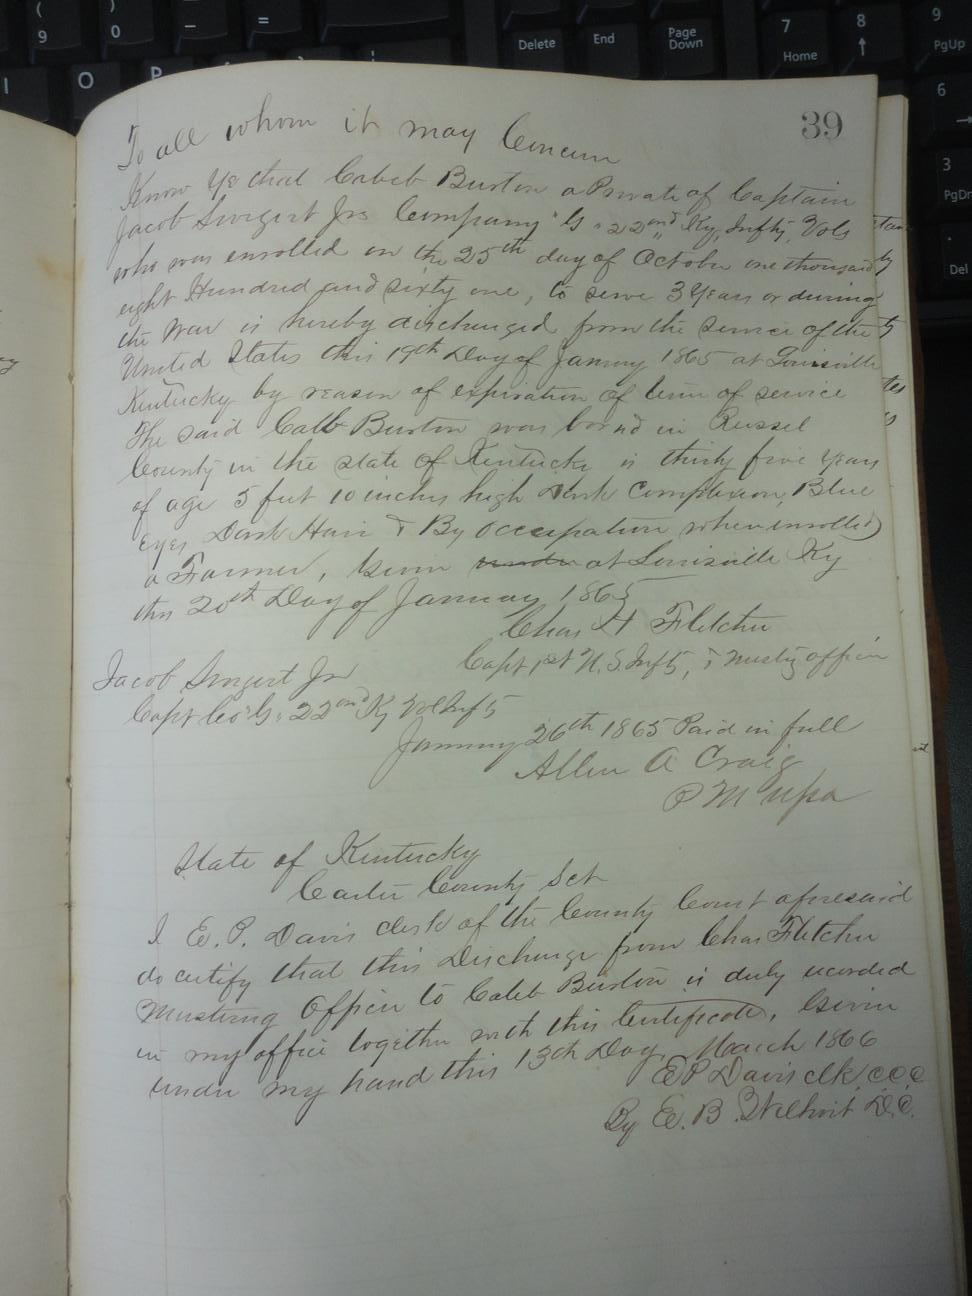 39
To all whom it may Concern
Know Ye that Caleb Burton a Private of Captain
Jacob Swigert Jrs Company "G" 22nd Ky, Infty, Vols
who was enrolled on the 25th day of October one thousand
eight Hundred and sixty one, to serve 3 Years or during
the War is hereby discharged from the Service of the
United States this 19th Day of January 1865 at Louisville
Kentucky by reason of expiration of term of service
The said Calb Burton was bornd in Russel
County in the state of Kentucky is thirty five years
of age 5 feet 10 inches high Dark Complexion, Blue
eyes, Dark Hair & By occupation when enrolled)
a Farmer, Given under at Louisville Ky
this 20th Day of January 1865
Chas H Fletcher
Capt 1st U.S. Infty, & Mustg officer
Jacob Swigert Jr
Capt Co "G" 22nd Ky Vol Infty
January 26th 1865 Paid in full
Allen A Craig
P M USA
State of Kentucky
Carter County Sct
I E. P. Davis clerk of the County Court aforesaid
do certify that this Discharge from Chas Fletcher
Mustering Officer to Caleb Burton is duly recorded
in my office together with this Certificate, Given
under my hand this 13th Day, March 1866
E P Davis clk, c c c
By E. B. Wilhoit D.C.